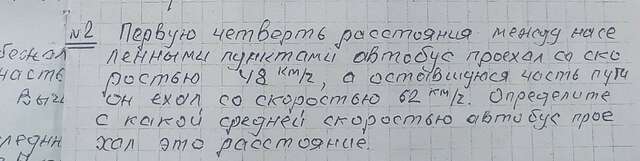 №2 Первую четверть расстояния между насе
бескол ленными пунктами автобус проехал со ско
часть ростью 48 км/г, а оставшуюся часть пути
он ехал со скоростью 62 км/г. Определите
с какой средней скоростью автобус прое
хал это расстояние.